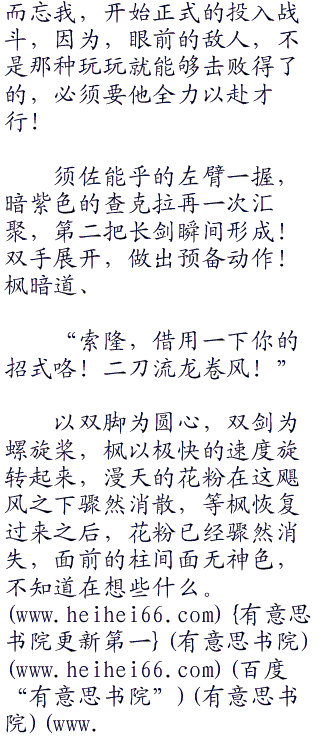 而忘我，开始正式的投入战
斗，因为，眼前的敌人，不
是那种玩玩就能够击败得了
的，必须要他全力以赴才
行！
须佐能乎的左臂一握，
暗紫色的查克拉再一次汇
聚，第二把长剑瞬间形成！
双手展开，做出预备动作！
枫暗道、
“索隆，借用一下你的
招式咯！二刀流龙卷风！”
以双脚为圆心，双剑为
螺旋桨，枫以极快的速度旋
转起来，漫天的花粉在这飓
风之下骤然消散，等枫恢复
过来之后，花粉已经骤然消
失，面前的柱间面无神色，
不知道在想些什么。
(www.heihei66.com) {有意思
书院更新第一} (有意思书院)
(www.heihei66.com) (百度
“有意思书院”) (有意思书
院) (www.